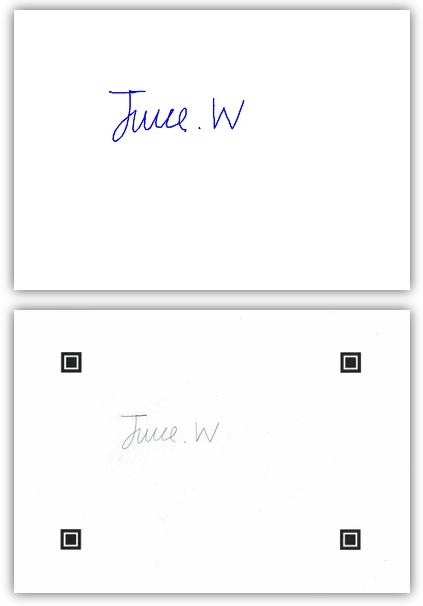 June.W
June.W